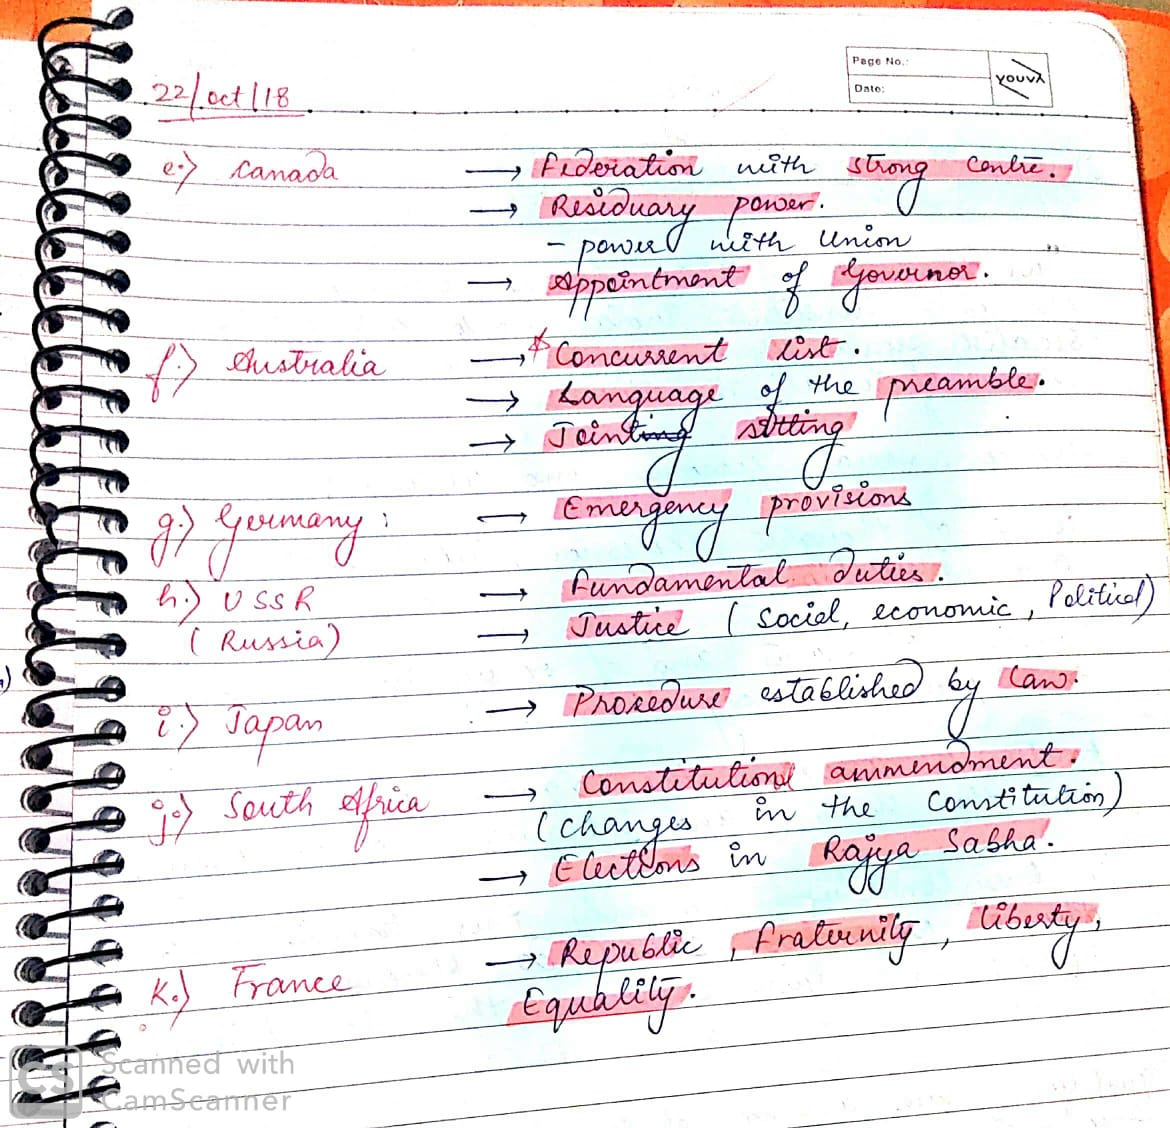 Page No.:
Date:
YOUVA
22/oct/18
e.) Canada → Federation with strong centre.
→ Residuary power.
- power with Union
→ Appointment of Governor.
f.) Australia → Concurrent list.
→ Language of the preamble.
→ Joint sitting
g.) Germany: → Emergency provisions
h.) USSR → Fundamental duties.
(Russia) → Justice (Social, economic, Political)
i.) Japan → Procedure established by law.
j.) South Africa → Constitutional ammendment.
(changes in the Constitution)
→ Elections in Rajya Sabha.
k.) France → Republic, fraternity, liberty,
Equality.
CS Scanned with
CamScanner